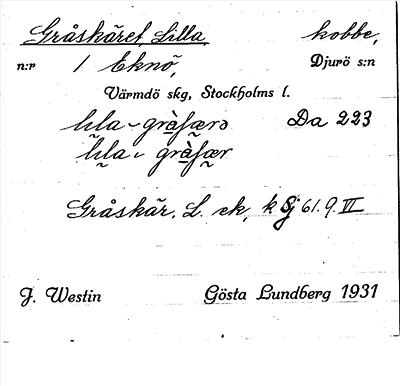 Gråskäret, Lilla, kobbe,
n:r 1 Eknö, Djurö s:n
Värmdö skg, Stockholms l.
Da 223
Gråskär. L. ek, k Sj 61.9.VI
J. Westin Gösta Lundberg 1931